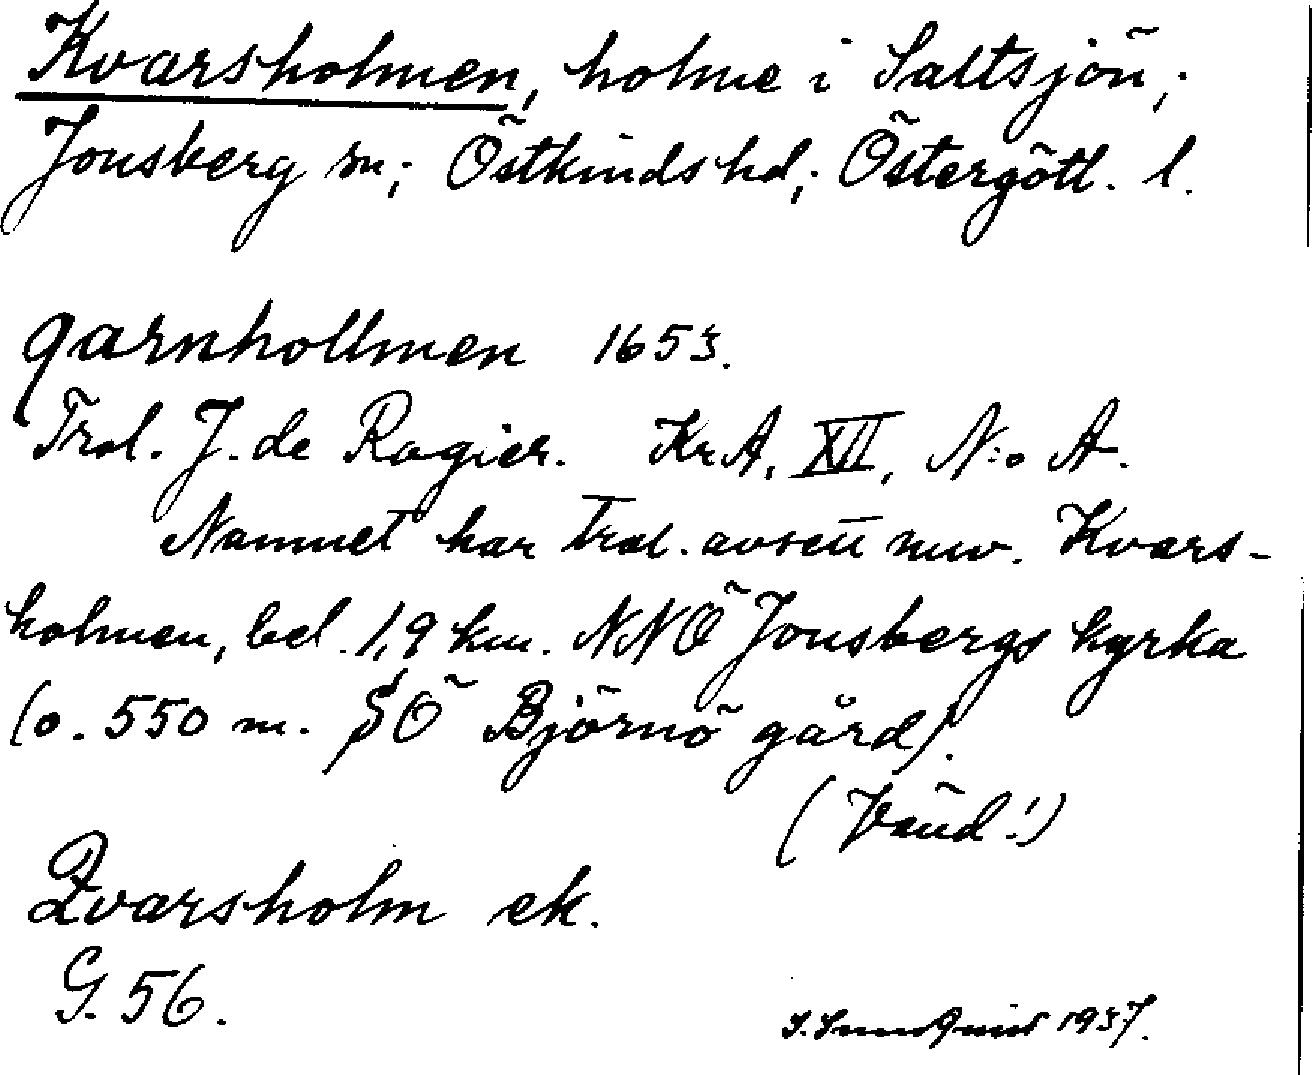 Kvarsholmen, holme i Saltsjön;
Jonsberg sn; Östkinds hd; Östergötl. l.
qarnhollmen 1653.
Trol. J. de Rogier. KrA, XII, N:o A.
Namnet har trol. avsett nuv. Kvars-
holmen, bel. 1,9 km. NNÖ Jonsbergs kyrka
(o. 550 m. SÖ Björnö gård).
(Vänd!)
Qvarsholm ek.
G. 56.
1937.